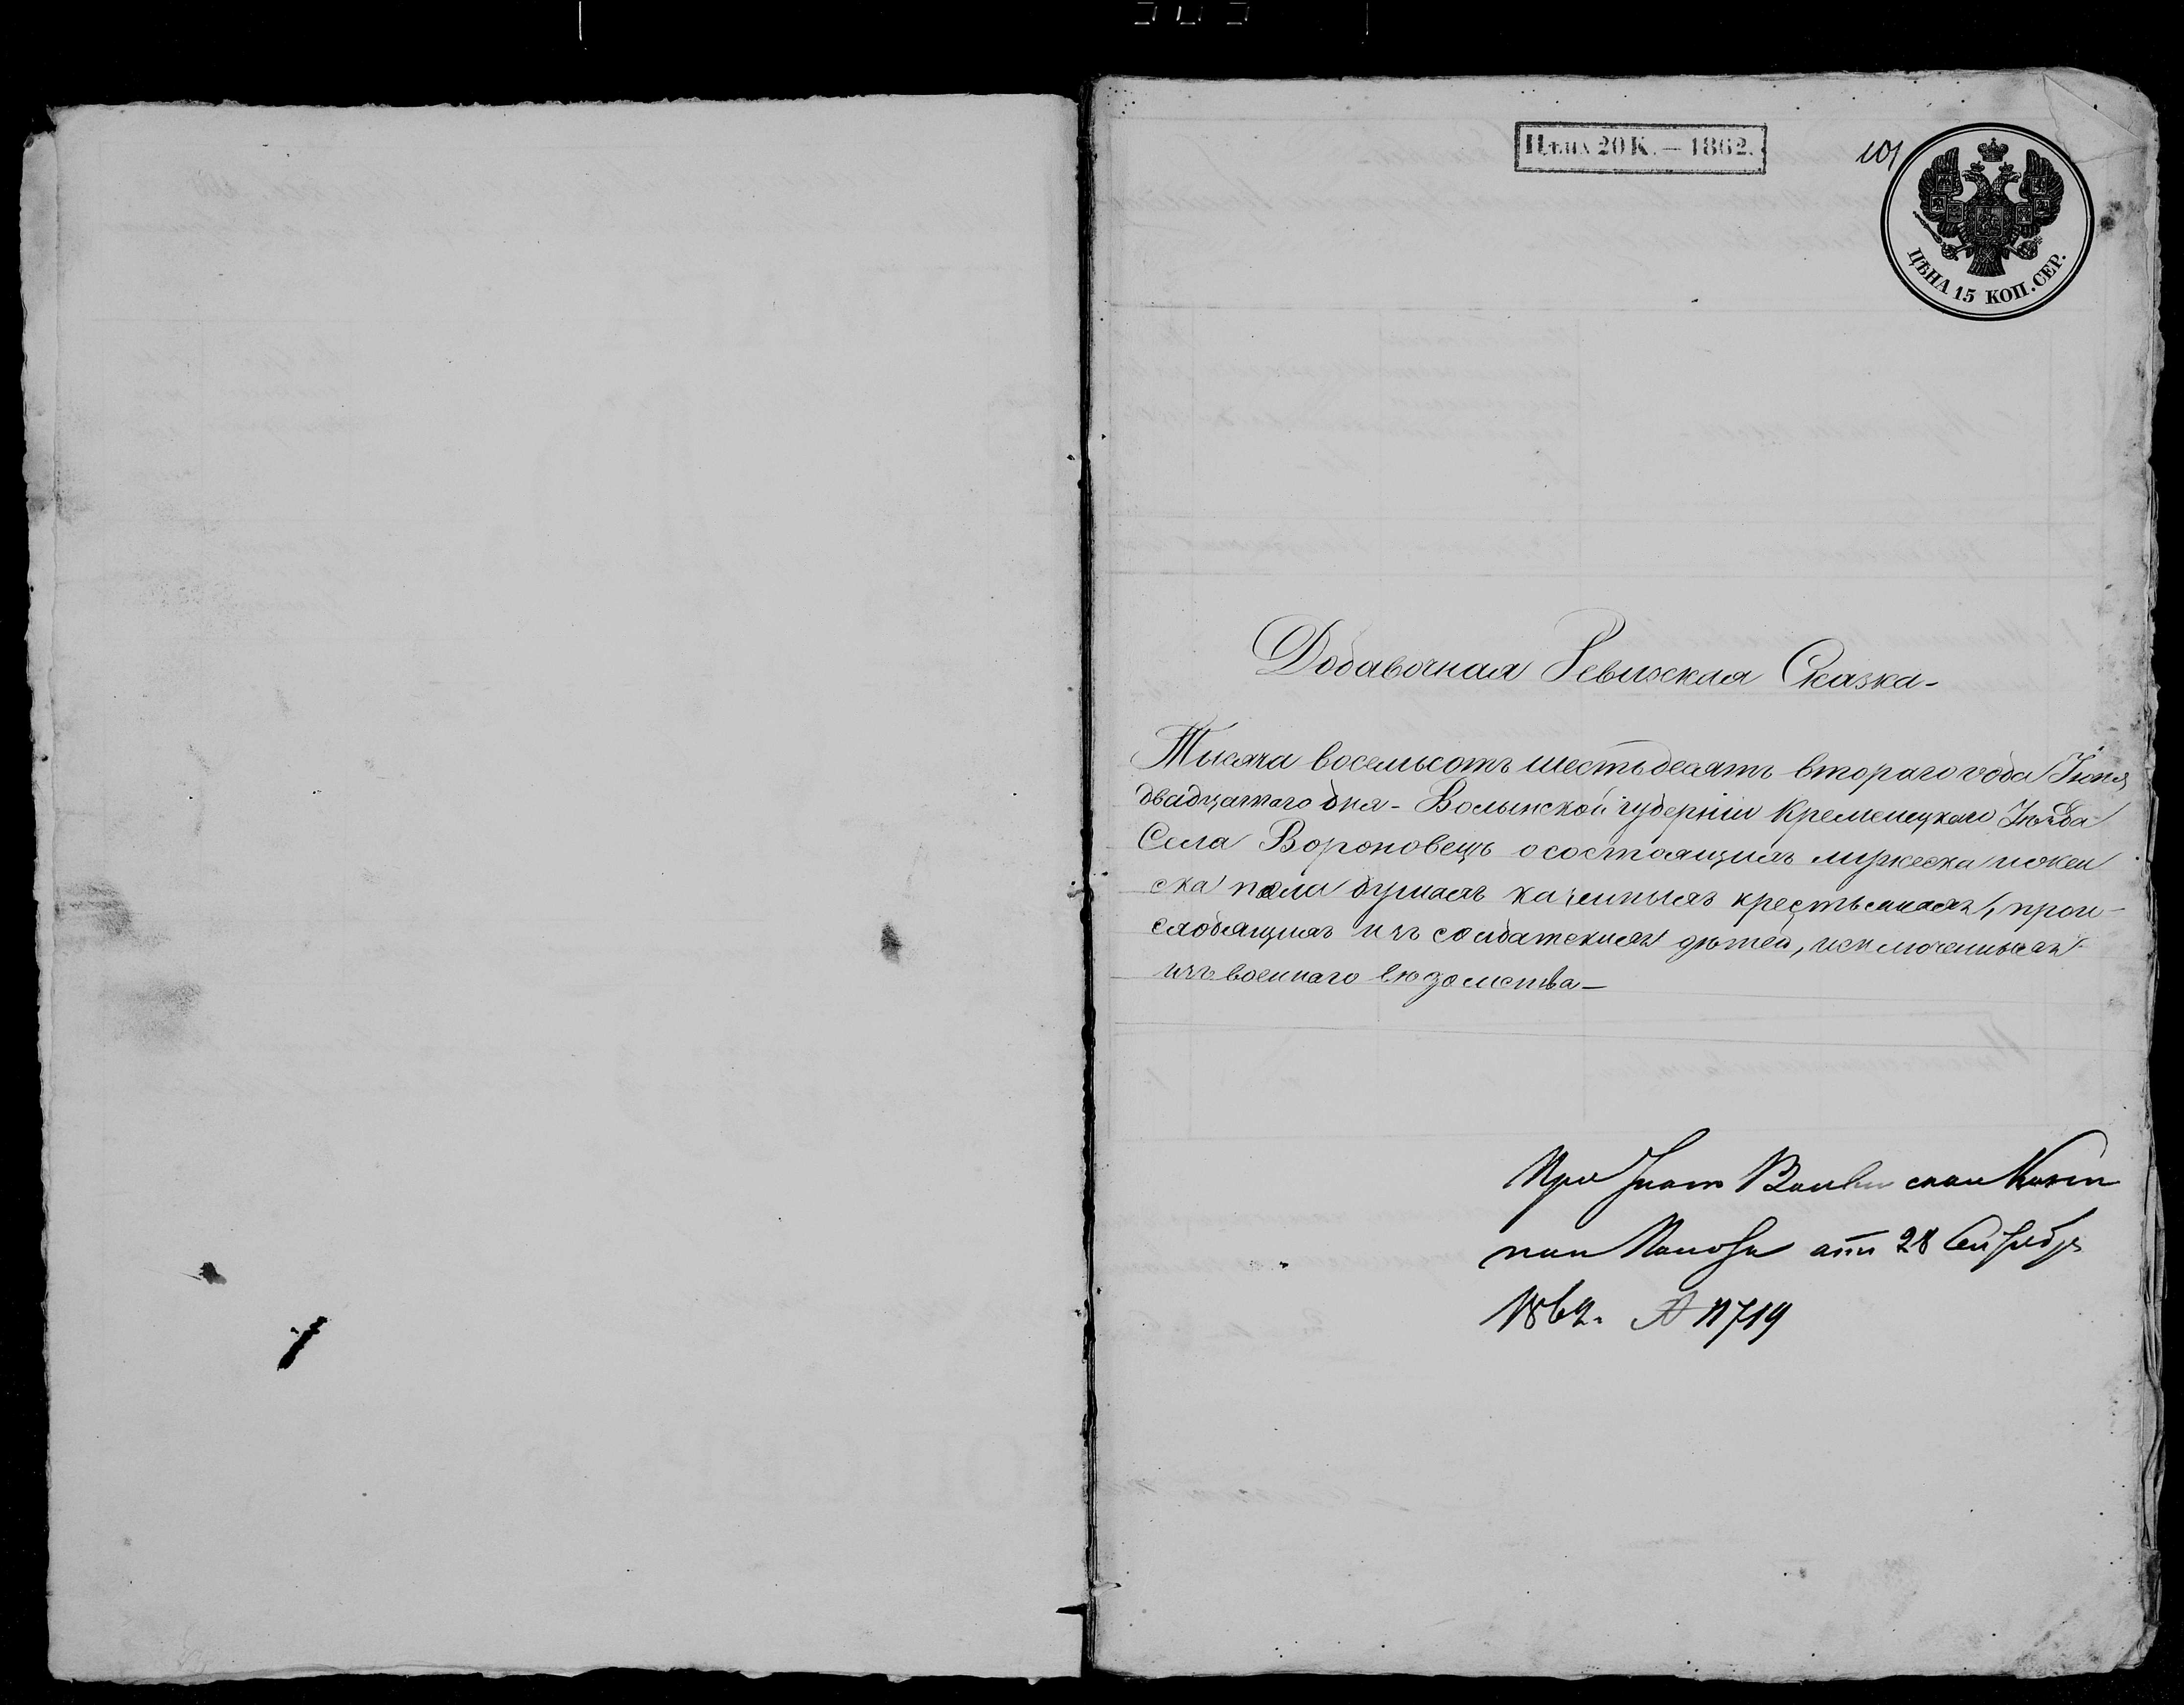 Цѣна 20 К. — 1862.
101
ЦѢНА 15 КОП. СЕР.
Добавочная Ревизская Сказка-
Тысяча восемьсотъ шестьдесятъ втораго года Іюня
двадцатаго дня - Волынской губерніи Кременецкаго Уѣзда
Села Вороновецъ о состоящихъ мужеска и жен
ска пола душахъ казенныхъ крестьянахъ, прои-
сходящихъ изъ солдатскихъ дѣтей, исключенныхъ
изъ военнаго вѣдомства —
При
отъ 28
1862. № 11719